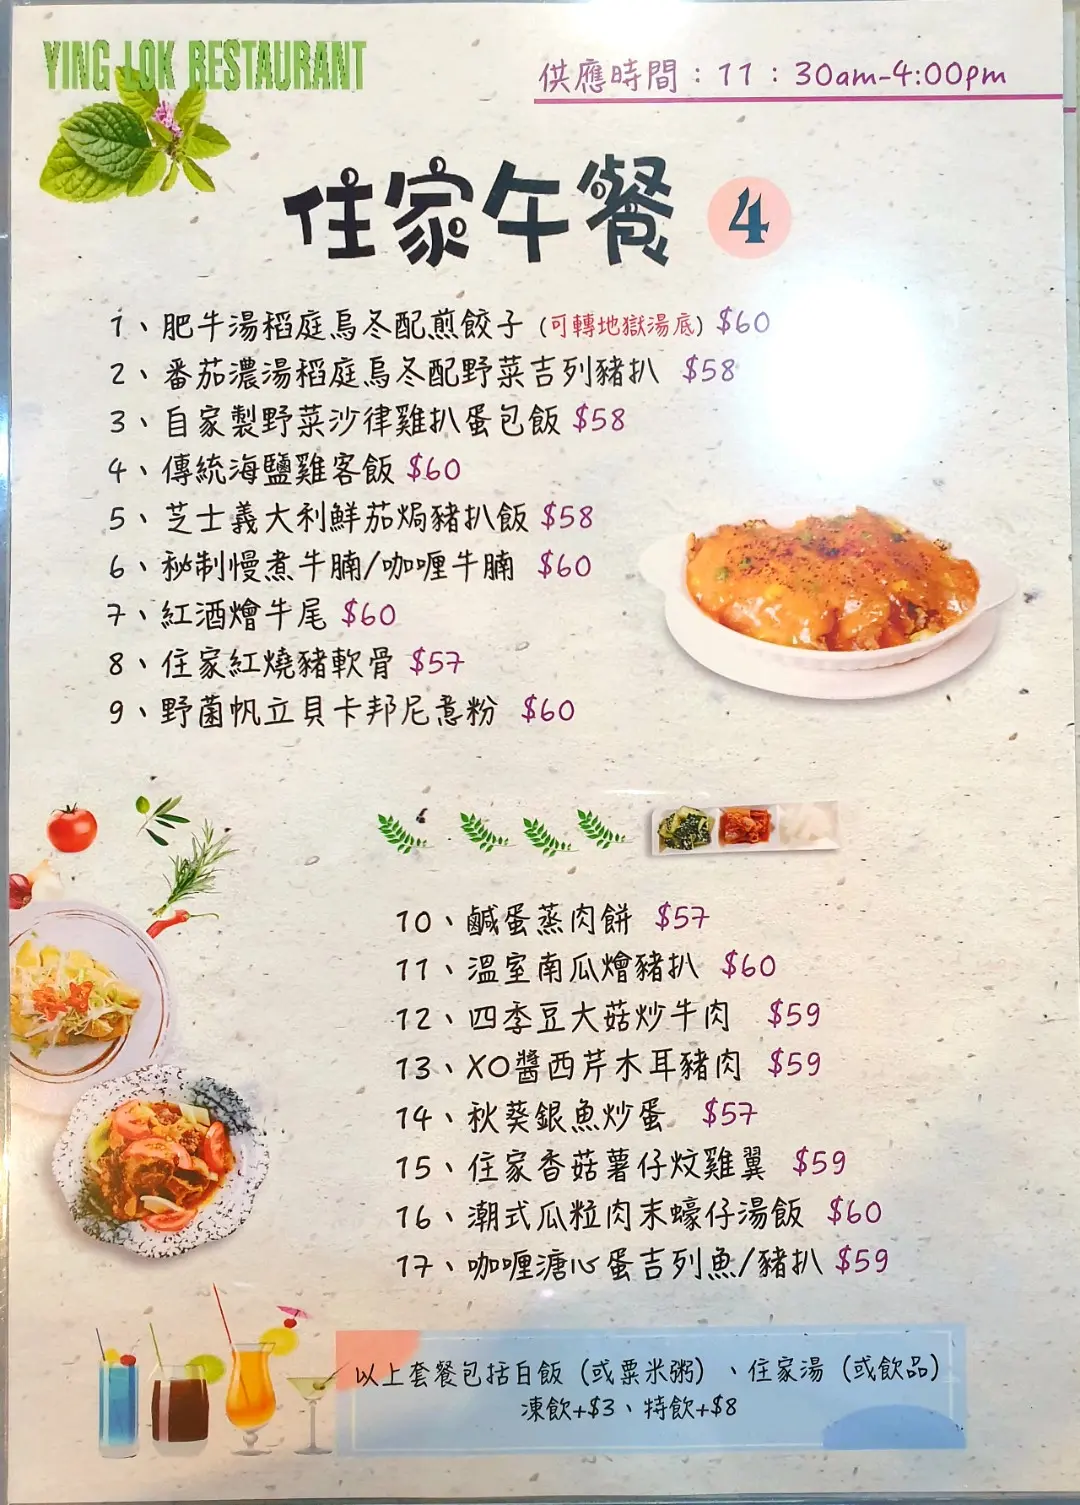 YING LOK RESTAURANT
供應時間：11：30am-4:00pm
住家午餐 4
1、肥牛湯稻庭烏冬配煎餃子 (可轉地獄湯底) $60
2、番茄濃湯稻庭烏冬配野菜吉列豬扒 $58
3、自家製野菜沙律雞扒蛋包飯 $58
4、傳統海鹽雞客飯 $60
5、芝士義大利鮮茄焗豬扒飯 $58
6、秘制慢煮牛腩/咖喱牛腩 $60
7、紅酒燴牛尾 $60
8、住家紅燒豬軟骨 $57
9、野菌帆立貝卡邦尼意粉 $60
10、鹹蛋蒸肉餅 $57
11、溫室南瓜燴豬扒 $60
12、四季豆大菇炒牛肉 $59
13、XO醬西芹木耳豬肉 $59
14、秋葵銀魚炒蛋 $57
15、住家香菇薯仔炆雞翼 $59
16、潮式瓜粒肉末蠔仔湯飯 $60
17、咖喱溏心蛋吉列魚/豬扒 $59
以上套餐包括白飯（或粟米粥）、住家湯（或飲品）
凍飲+$3、特飲+$8